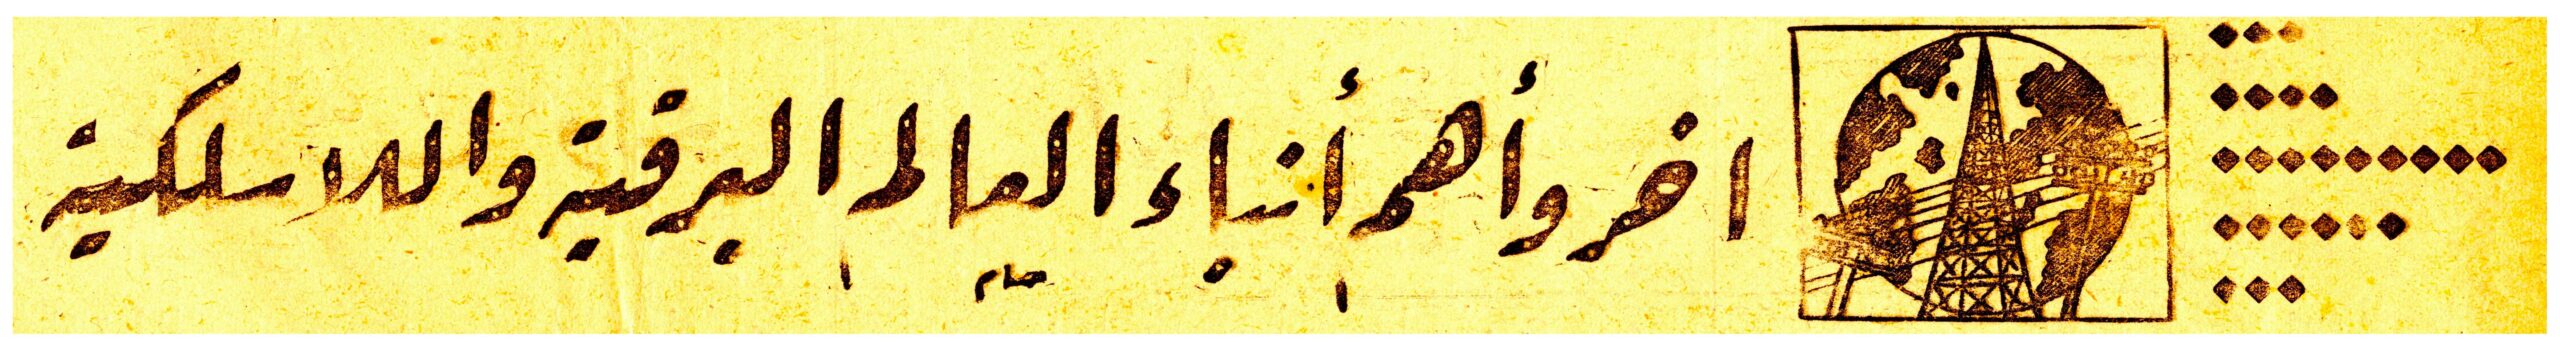 اخر وأهم أنباء العالم البرقية واللاسلكية